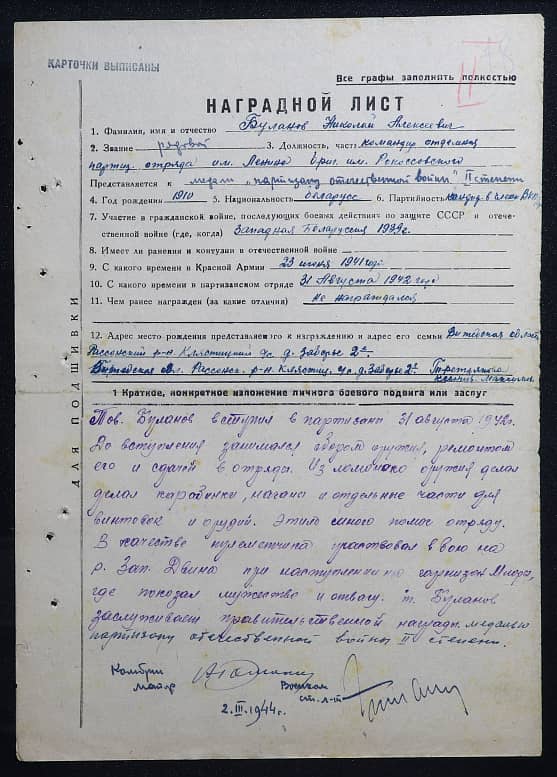 КАРТОЧКИ ВЫПИСАНЫ
Все графы заполнять полностью
НАГРАДНОЙ ЛИСТ
1. Фамилия, имя и отчество Буланов Николай Алексеевич
2. Звание рядовой 3. Должность, часть командир отделения
партиз. отряда им. Ленина бриг. им. Рокоссовского
Представляется к медали „партизану отечественной войны" II степени
4. Год рождения 1910 5. Национальность беларусс 6. Партийность
7. Участие в гражданской войне, последующих боевых действиях по защите СССР и отече-
ственной войне (где, когда) Западная Белоруссия 1939 г.
8. Имеет ли ранения и контузии в отечественной войне
9. С какого времени в Красной Армии 23 июня 1941 года
10. С какого времени в партизанском отряде 31 Августа 1942 года
11. Чем ранее награжден (за какие отличия) не награждался
12. Адрес место рождения представляемого к награждению и адрес его семьи Витебская область,
Россонский р-н Клястицкий с/с д. Заборье 2ое
Витебская обл. Россонск. р-н Клястиц. с/с д. Заборье 2ое
1 Краткое, конкретное изложение личного боевого подвига или заслуг
Тов. Буланов вступил в партизаны 31 августа 1942 г.
До вступления занимался сбором оружия, ремонтом
его и сдачей в отряда. Из ломаного оружия делал
делал карабинки, наганы и отдельные части для
винтовок и орудий. Этим много помог отряду.
В качестве пулеметчика участвовал в бою на
р. Зап. Двина при наступлении на гарнизон Миоры,
где показал мужество и отвагу. т. Буланов
заслуживает правительственной наградн. медалью
партизану отечественной войны II степени.
Комбриг Военком
майор ст. л-т
2.III.1944г.
ДЛЯ ПОДШИВКИ